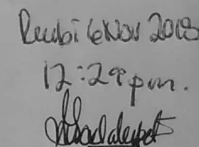 Recibi 6 Nov 2018
12:29pm.